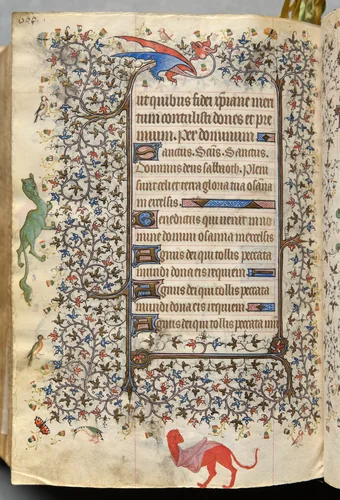 ut quibus fidei xp̄iane meri
tum contulisti dones et pre
mium. Per dominum
Sanctus. Sc̄us. Sanctus.
Dominus deus sabaoth. Pleni
sunt celi et terra gloria tua osana
in excelsis.
Benedictus qui uenit in no
mine domini osanna in excelsis
Agnus dei qui tollis peccata
mundi dona eis requiem
Agnus dei qui tollis peccata
mundi dona eis requiem
Agnus dei qui tollis peccata mū